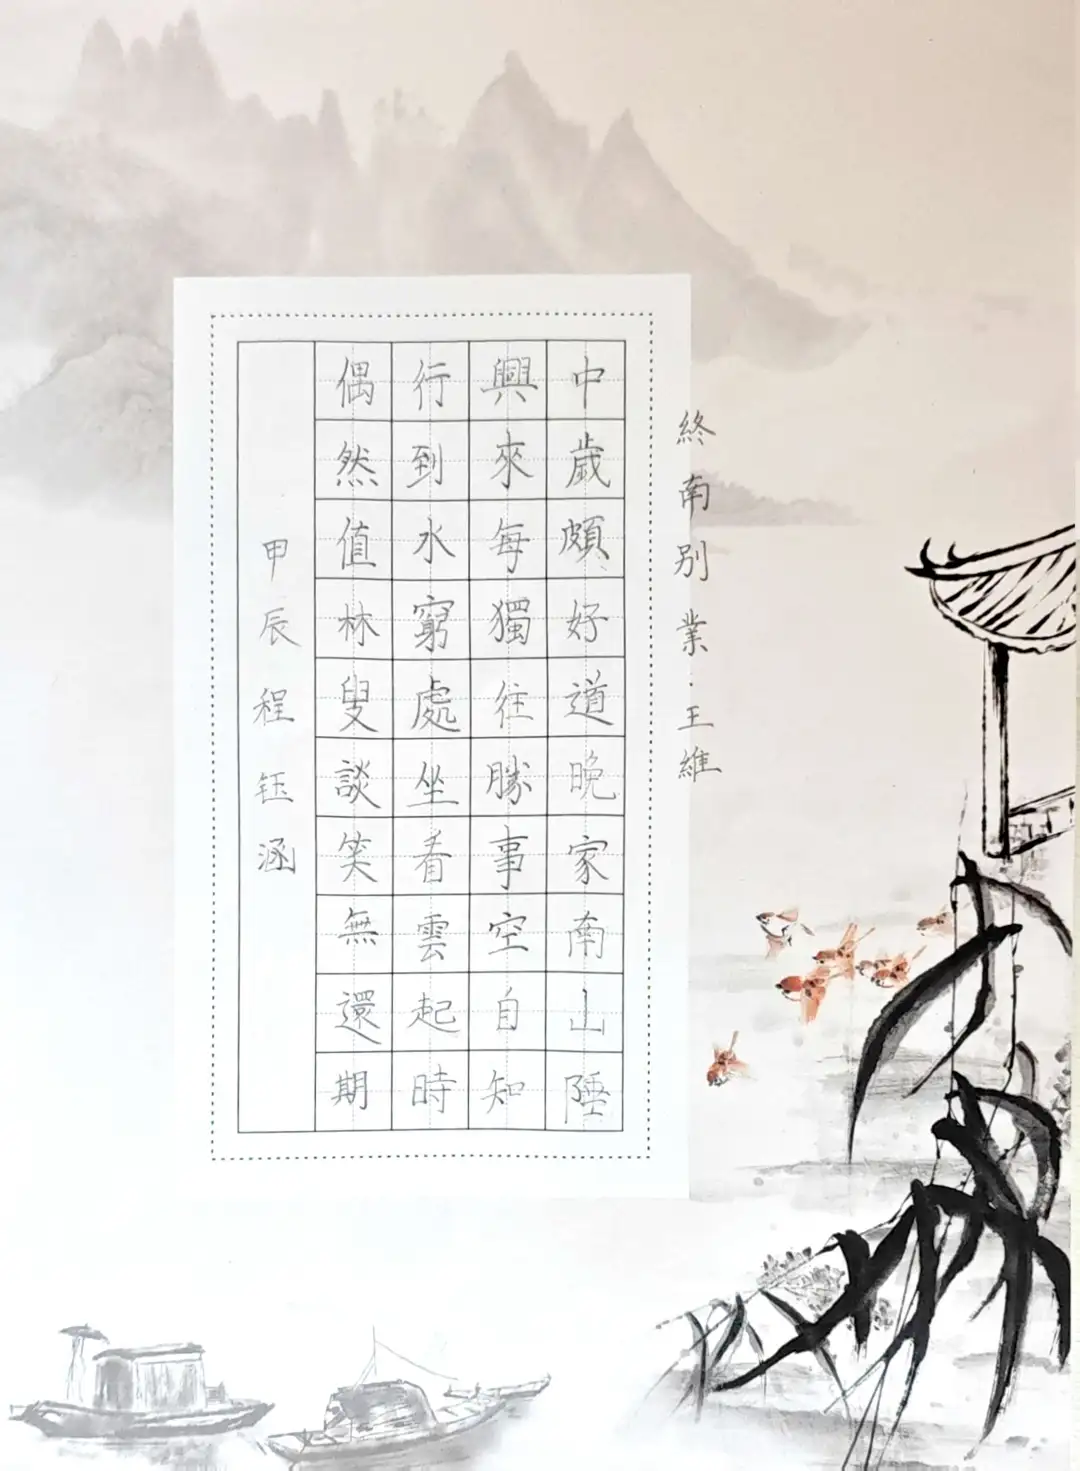 終南别業·王維
中歲頗好道晚家南山陲
興來每獨往勝事空自知
行到水窮處坐看雲起時
偶然值林叟談笑無還期
甲辰程钰涵